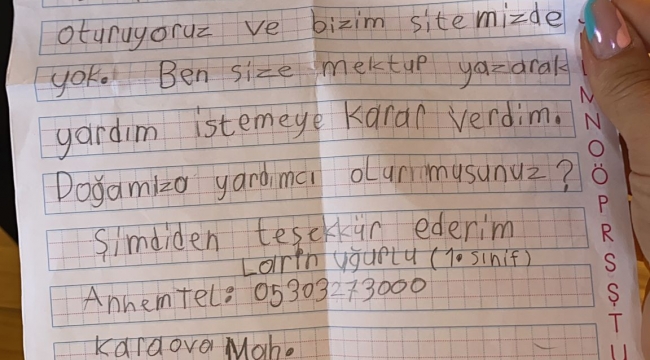 oturuyoruz ve bizim sitemizde
yok. Ben size mektup yazarak
yardım istemeye karar verdim.
Doğamıza yardımcı olurmusunuz?
Şimdiden teşekkür ederim
Larin Uğurlu (1. sınıf)
Annem Tel: 05303273000
Kardova Mah.
L
M
N
O
Ö
P
R
S
Ş
T
U